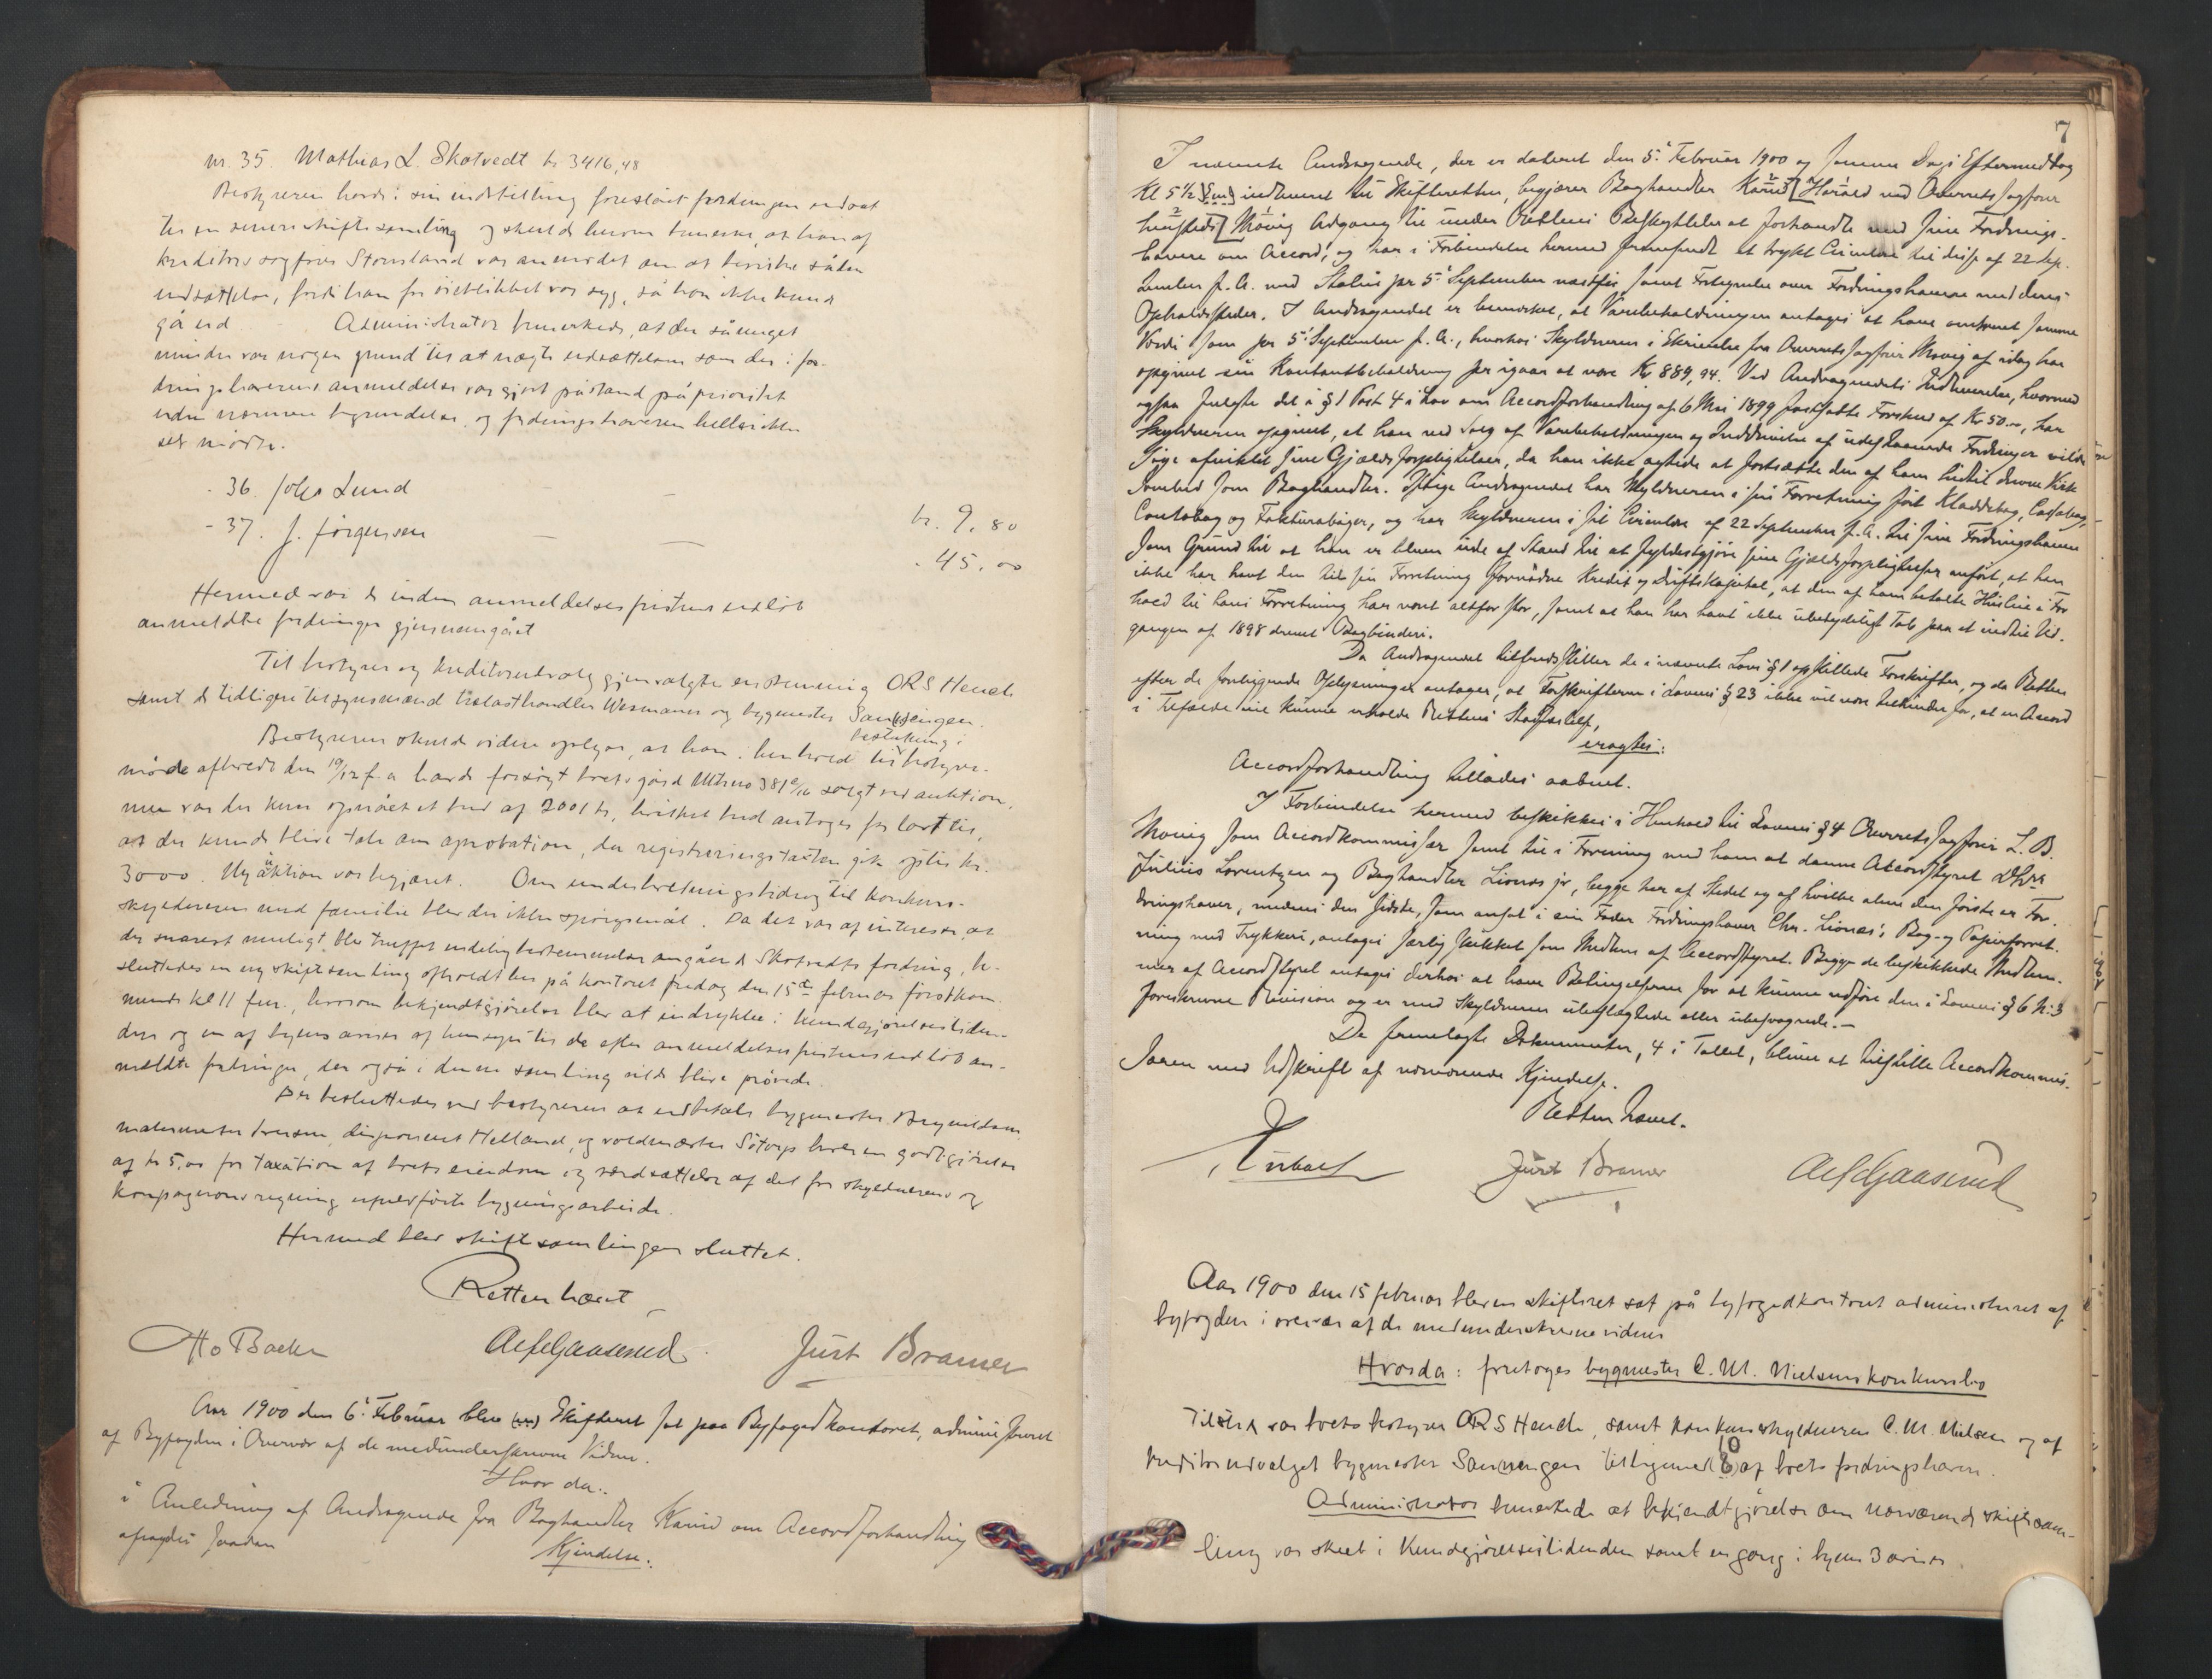 nr. 35. Mathias L. Skotvedt kr 3416,48
Bestyreren havde i sin indstilling foreslået fordringen udsat
til en senere skiftesamling og skulde herom bemerke, at han af
kreditors sagfører Storsland var anmodet om at bevirke sådan
udsættelse, fordi han for øieblikket var syg, så han ikke kunde
gå ud. Administrator bemerkede, at der så meget
mindre var nogen grund til at nægte udsættelsen som der i for-
dringshaverens anmeldelse var gjort påstand på prioritet
uden nærmere begrundelse, og fordringshaveren heller ikke
selv mødte.
- 36. Johs Lund — — kr. 9,80
- 37. J. Jørgensen — — - 45,00
Hermed var de inden anmeldelsesfristens udløb
anmeldte fordringer gjennemgået
Til bestyrer og kreditorudvalg gjenvalgtes enstemmig ORS Hench
samt de tidligere tilsynsmænd trælasthandler Wesmann og bygmester Sannengen.
Bestyreren skulde videre oplyse, at han i henhold til beslutning i bestyrer-
møde afholdt den 19/12 f. a. havde forsøgt boets gård Mtrno 381 solgt ved auktion,
men var der kun opnået et bud af 2001 kr, hvilket bud antoges for lavt til,
at der kunde blive tale om aprobation, da registreringstaxten gik op til kr.
3000. Ny auktion var begjæret. Om underholdningsbidrag til konkurs-
skyldneren med familie blev der ikke spørgsmål. Da det var af interesse, at
der snarest muligt blev truffet endelig bestemmelse angående Skotvedts fordring, be-
sluttedes en ny skiftesamling afholdt her på kontoret fredag den 15de februar førstkom-
mende kl 11 fm., hvorom bekjendtgjørelse blev at indrykke i kundgjørelsestiden-
den og en af byens aviser af hensyn til de efter anmeldelsesfristens udløb an-
meldte fordringer, der også i denne samling vilde blive prøvede.
Det besluttedes ved bestyreren at udbetale bygmester Brynildsen,
malermester Iversen, disponent Helland, og voldmester Sötorp hver en godtgjørelse
af kr 5,00 for taxation af boets eiendom og værdsættelse af det for skyldnerens og
kompagnons regning udførte bygningsarbeide.
Hermed blev skiftesamlingen sluttet.
Retten hævet
Otto Backe Alf Gaaserud. Just Bramer
Aar 1900 den 6' Februar blev (en) Skifteret sat paa Byfogedkontoret, administreret
af Byfogden i Overvær af de medunderskrevne Vidner.
Hvor da:
i Anledning af Andragende fra Boghandler Karud om Accordforhandling
afsagdes saadan
Kjendelse:
7
I nævnte Andragende, der er dateret den 5' Februar 1900 og samme Dags Eftermiddag
Kl 5½ [em] indleveret til Skifteretten, begjærer Boghandler Karud [Harald ved Overretssagfører
Mövig Adgang til under Rettens Beskyttelse at forhandle med sine Fordrings-
havere om Accord, og har i Forbindelse hermed fremsendt et trykt Circulære til disse af 22 Sep-
tember f. A. med Status per 5' September næstfør samt Fortegnelse over Fordringshavere med deres
Opholdssteder. I Andragendet er bemerket, at Varebeholdningen antages at have omtrent samme
Værdi som per 5' September f. A., hvorhos Skyldneren i Skrivelse fra Overretssagfører Mövig af idag har
opgivet sin Kontantbeholdning per igaar at være Kr 889,94. Ved Andragendets Indleverelse, hvormed
ogsaa fulgte det i § 1 Post 4 i Lov om Accordforhandling af 6 Mai 1899 fastsatte Forskud af Kr 50.00, har
Skyldneren opgivet, at han ved Salg af Varebeholdningen og Inddrivelse af udestaaende Fordringer vilde
søge afviklet sine Gjældsforpligtelser, da han ikke agtede at fortsætte den af ham hidtil drevne Virk
somhed som Boghandler. Ifølge Andragendet har Skyldneren i sin Forretning ført Kladdebog, Cassabog,
Contobog og Fakturabøger, og har Skyldneren i sit Circulære af 22 September f. A. til sine Fordringshavere
som Grund til at han er bleven ude af Stand til at fyldestgjøre sine Gjældsforpligtelser anført, at han
ikke har havt den til sin Forretning fornødne Kredit og Driftskapital, at den af ham betalte Husleie i For
hold til hans Forretning har været altfor stor, samt at han har havt ikke ubetydeligt Tab paa et indtil Ud-
gangen af 1898 drevet Bogbinderi.
Da Andragendet tilfredsstiller de i nævnte Lovs § 1 opstillede Forskrifter, og da Retten
efter de foreliggende Oplysninger antager, at Forskrifterne i Lovens § 23 ikke vil være til Hinder for, at en Accord
i Tilfælde vil kunne erholde Rettens Stadfæstelse,
eragtes:
Accordforhandling tillades aabnet.
I Forbindelse hermed beskikkes i Henhold til Lovens § 4 Overretssagfører L. B.
Mövig som Accordkommissær samt til i Forening med ham at danne Accordstyret DHrr
Julius Lorentzen og Boghandler Lionæs jr, begge her af Stedet og af hvilke alene den første er For-
dringshaver, medens den sidste, som ansat i sin Fader Fordringshaver Chr. Lionæs's Bog- og Papirforret-
ning med Trykkeri, antages særlig skikket som Medlem af Accordstyret. Begge de beskikkede Medlem-
mer af Accordstyret antages derhos at have Betingelserne for at kunne udføre den i Lovens § 6 N: 3
foreskrevne Revision og er med Skyldneren ubeslægtede eller ubesvogrede.—
De fremlagte Dokumenter, 4 i Tallet, bliver at tilstille Accordkommis-
særen med Udskrift af nærværende Kjendelse.
Retten hævet.
Just Bramer Alf Gaaserud
Aar 1900 den 15 februar blev en skifteret sat på byfogedkontoret administreret af
byfogden i overvær af de medunderskrevne vidner
Hvorda: foretoges bygmester C. M. Nielsens konkursbo
Tilstede var boets bestyrer ORS Hench, samt konkursskyldneren C. M. Nielsen og af
kreditorudvalget bygmester Sannengen tilligemed (8) 10 af boets fordringshavere.
Administrator bemerkede at bekjendtgjørelse om nærværende skiftesam-
ling var skeet i Kundgjørelsestidenden samt en gang i byens 3 aviser